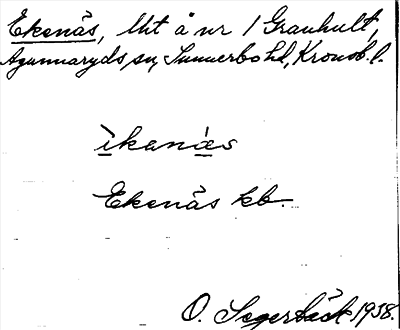 Ekenäs, lht å nr 1 Granhult,
Agunnaryds sn, Sunnerbo hd, Kronob. l.
ìkenæs
Ekenäs kb.
O. Segerbäck 1938.